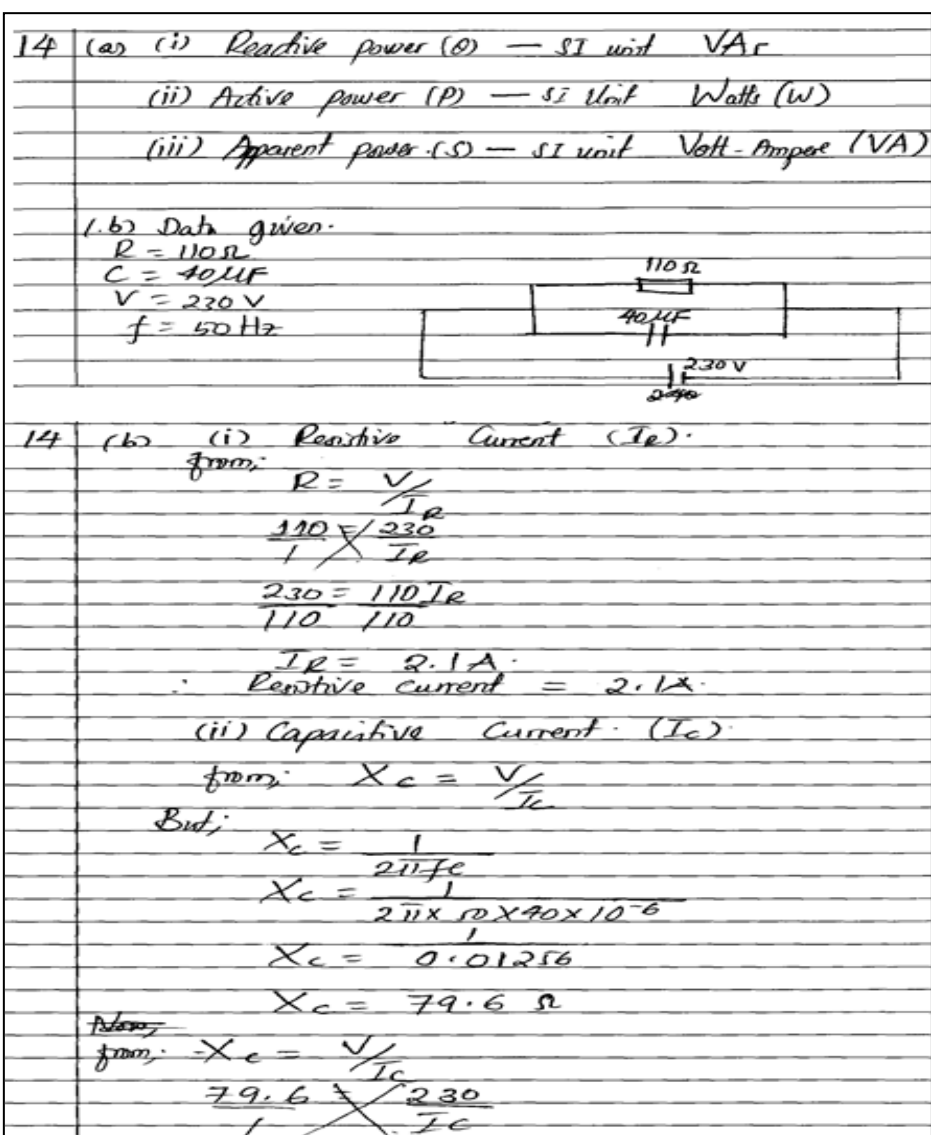 14 (a) (i) Reactive power (Q) — SI unit VAr
(ii) Active power (P) — SI Unit Watts (W)
(iii) Apparent power (S) — SI unit Volt-Ampere (VA)
(b) Data given.
R = 110Ω
C = 40μF
V = 230 V
f = 50 Hz
110Ω
40μF
230 V
14 (b) (i) Resistive Current (I_R).
from;
R = V/I_R
110/1 = 230/I_R
230/110 = 110 I_R/110
I_R = 2.1 A.
∴ Resistive current = 2.1A.
(ii) Capacitive Current. (I_c).
from; X_c = V/I_c
But;
X_c = 1/2πfc
X_c = 1/2π × 50 × 40 × 10^-6
X_c = 1/0.01256
X_c = 79.6 Ω
Now,
from; X_c = V/I_c
79.6/1 = 230/I_c